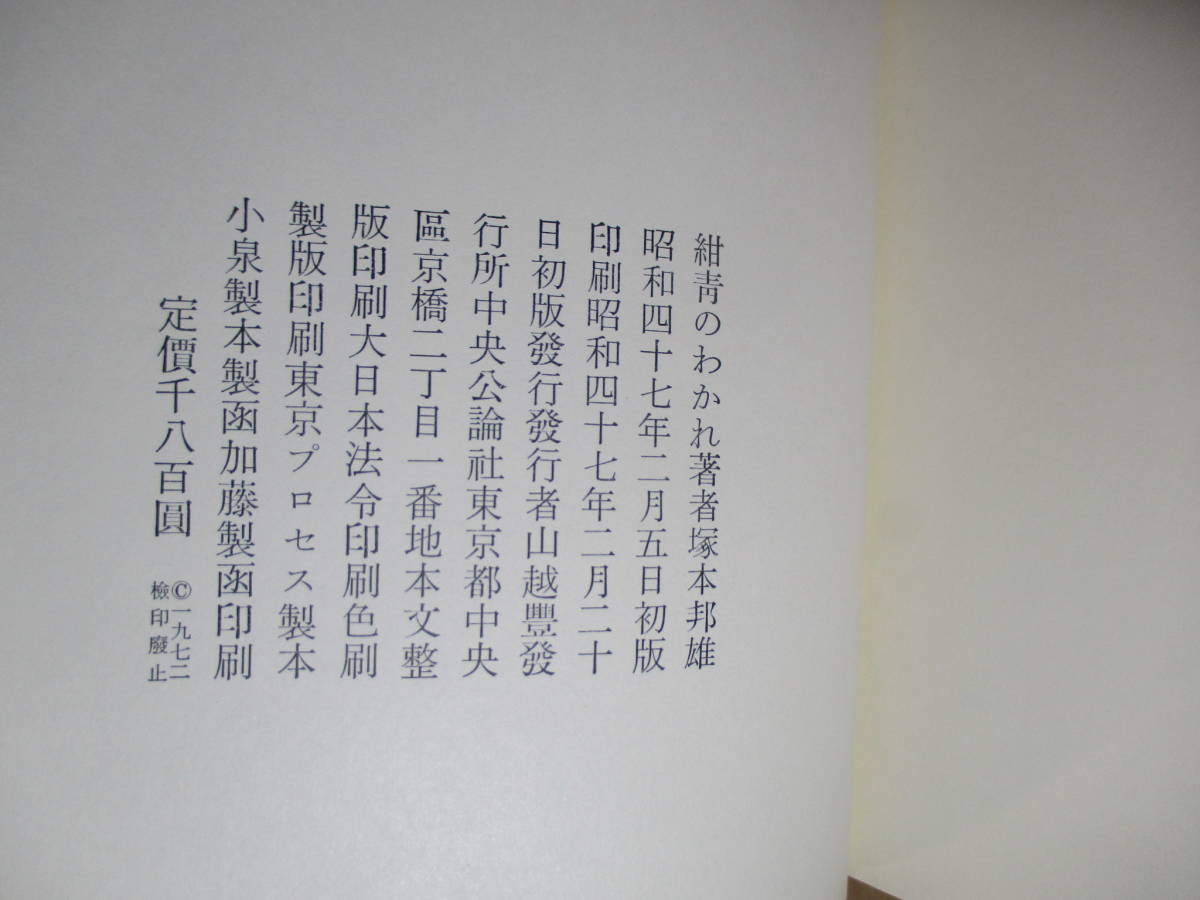 紺靑のわかれ著者塚本邦雄
昭和四十七年二月五日初版
印刷昭和四十七年二月二十
日初版發行發行者山越豐發
行所中央公論社東京都中央
區京橋二丁目一番地本文整
版印刷大日本法令印刷色刷
製版印刷東京プロセス製本
小泉製本製函加藤製函印刷
定價千八百圓
©一九七二
檢印廢止